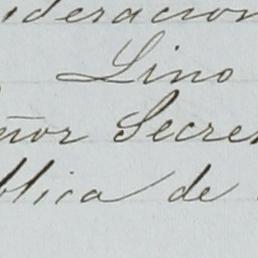 ideracion
Lino
eñor Secre
blica de